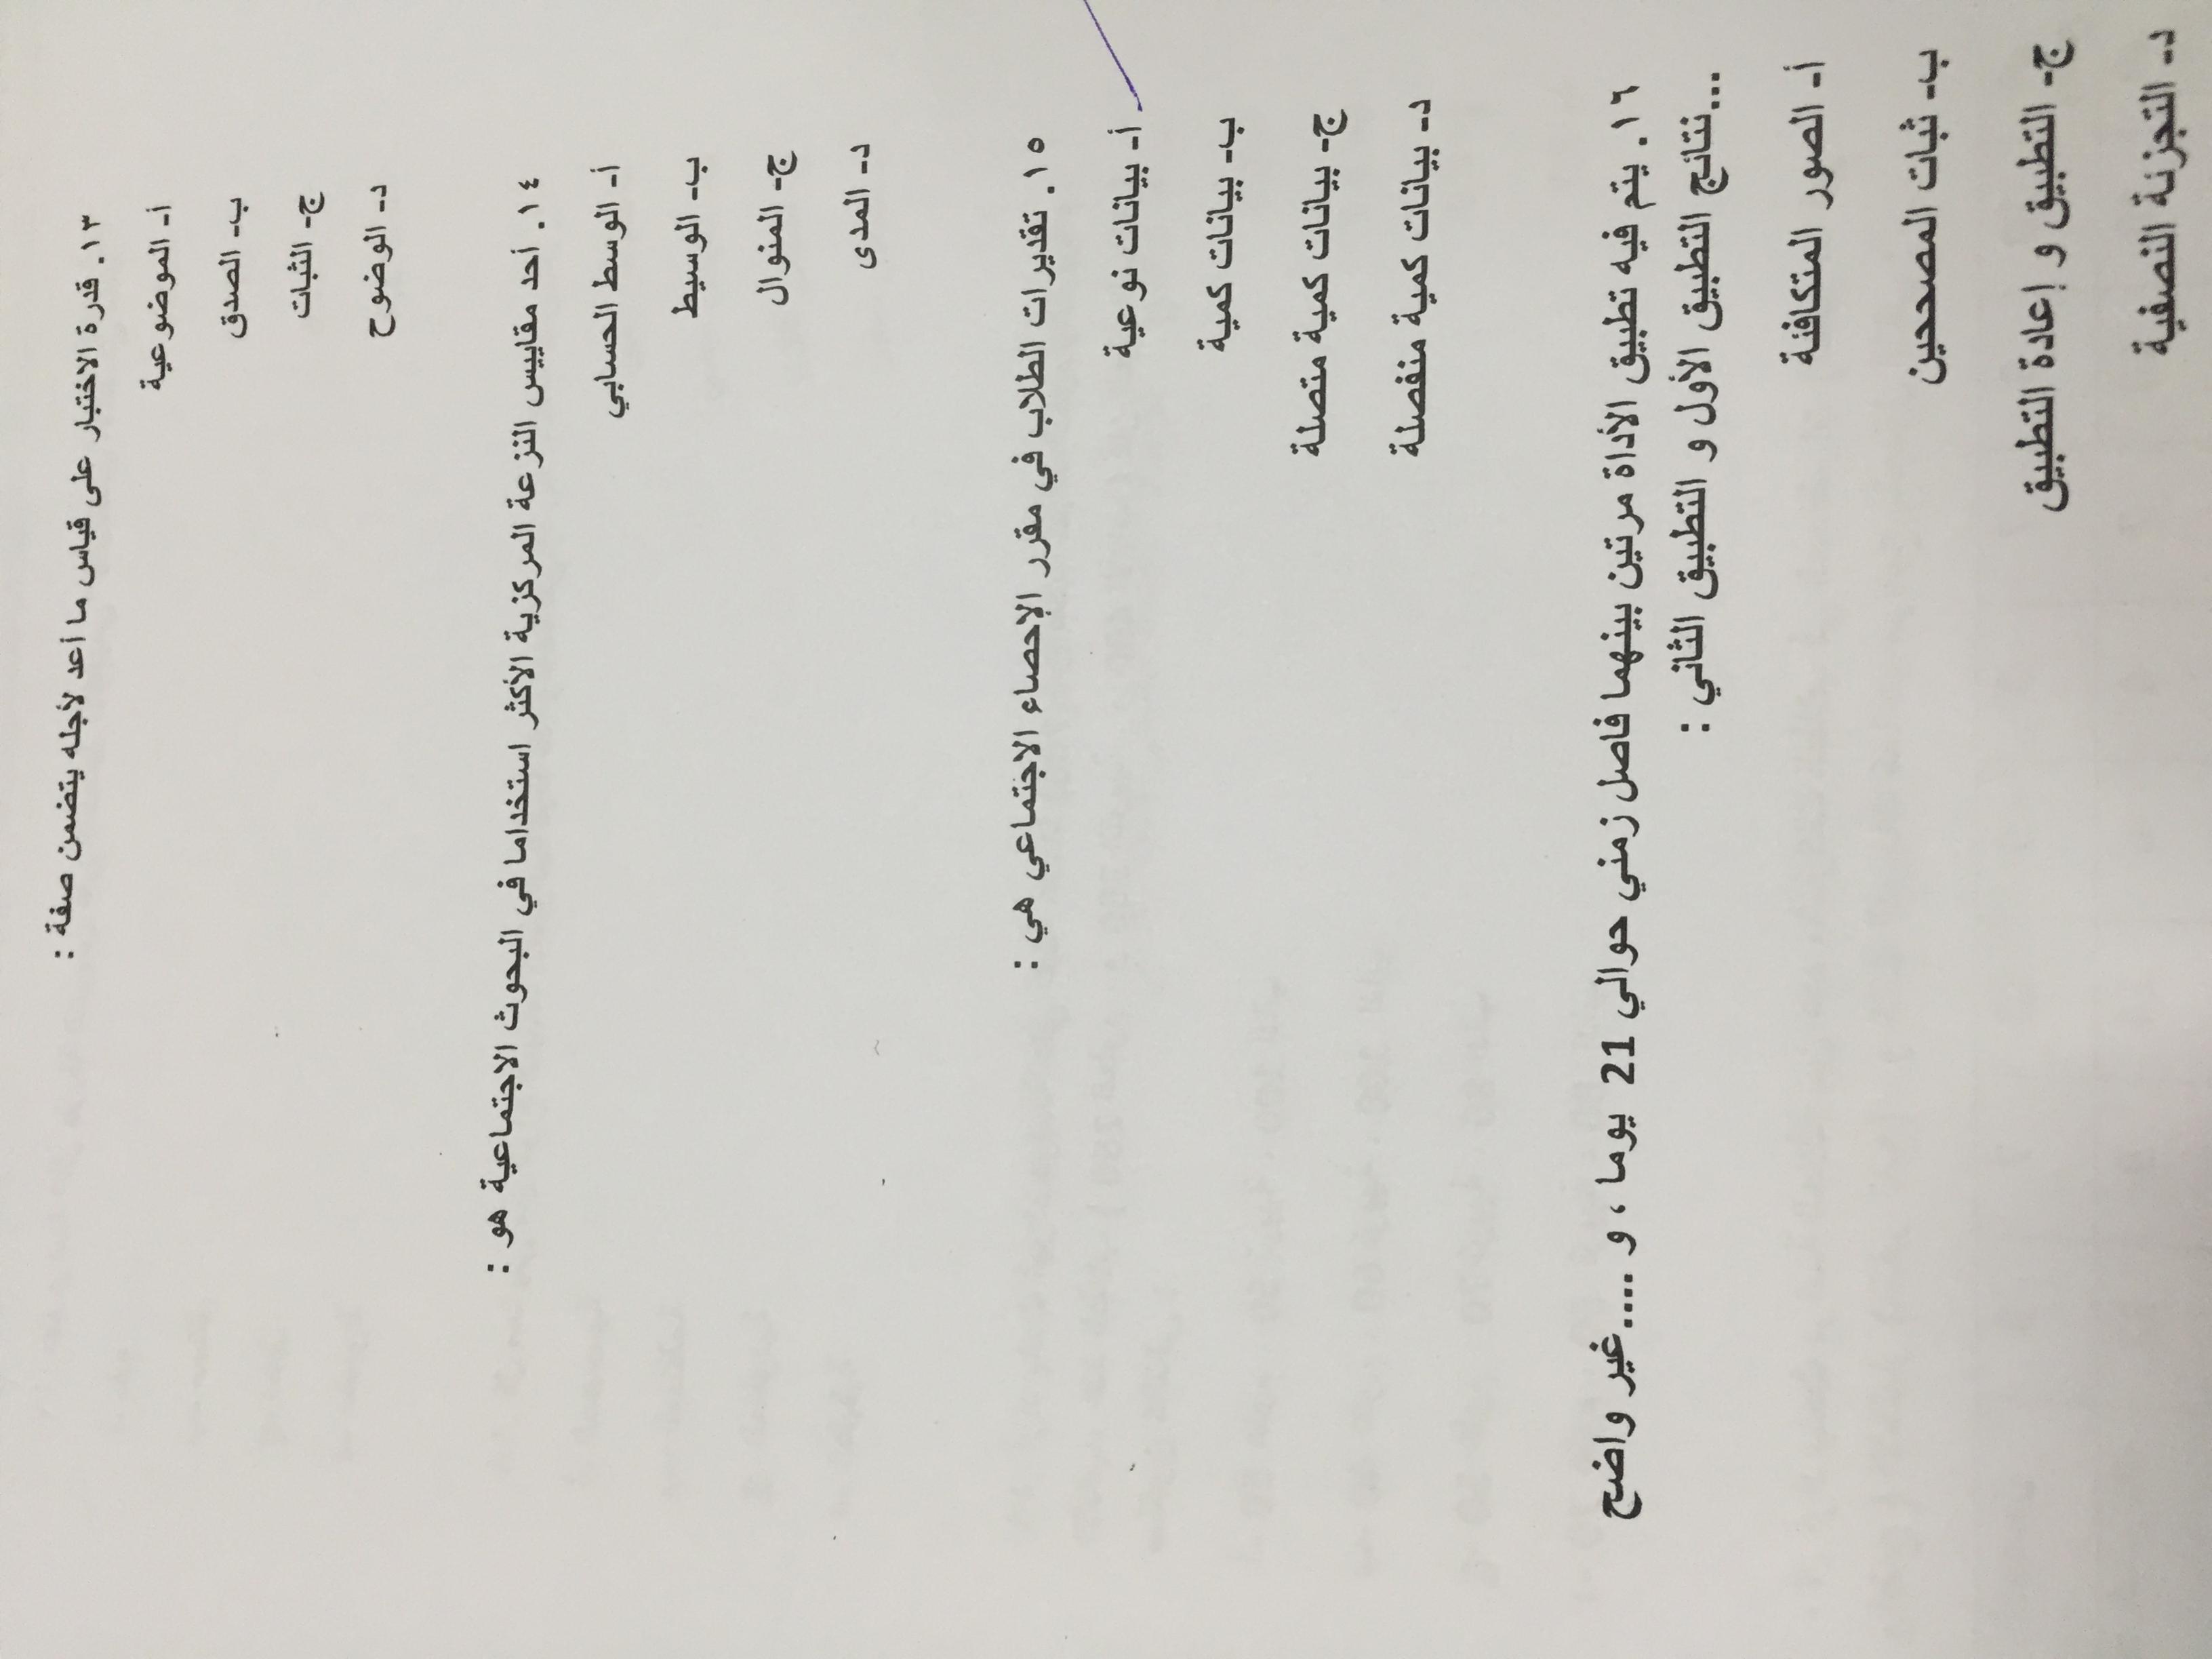 ١٣. قدرة الاختبار على قياس ما أعد لأجله يتضمن صفة :
أ- الموضوعية
ب- الصدق
ج- الثبات
د- الوضوح
١٤. أحد مقاييس النزعة المركزية الأكثر استخداما في البحوث الاجتماعية هو :
أ- الوسط الحسابي
ب- الوسيط
ج- المنوال
د- المدى
١٥. تقديرات الطلاب في مقرر الإحصاء الاجتماعي هي :
أ- بيانات نوعية
ب- بيانات كمية
ج- بيانات كمية متصلة
د- بيانات كمية منفصلة
١٦. يتم فيه تطبيق الأداة مرتين بينهما فاصل زمني حوالي 21 يوما ، و ....غير واضح
...نتائج التطبيق الأول و التطبيق الثاني :
أ- الصور المتكافئة
ب- ثبات المصححين
ج- التطبيق و إعادة التطبيق
د- التجزئة النصفية